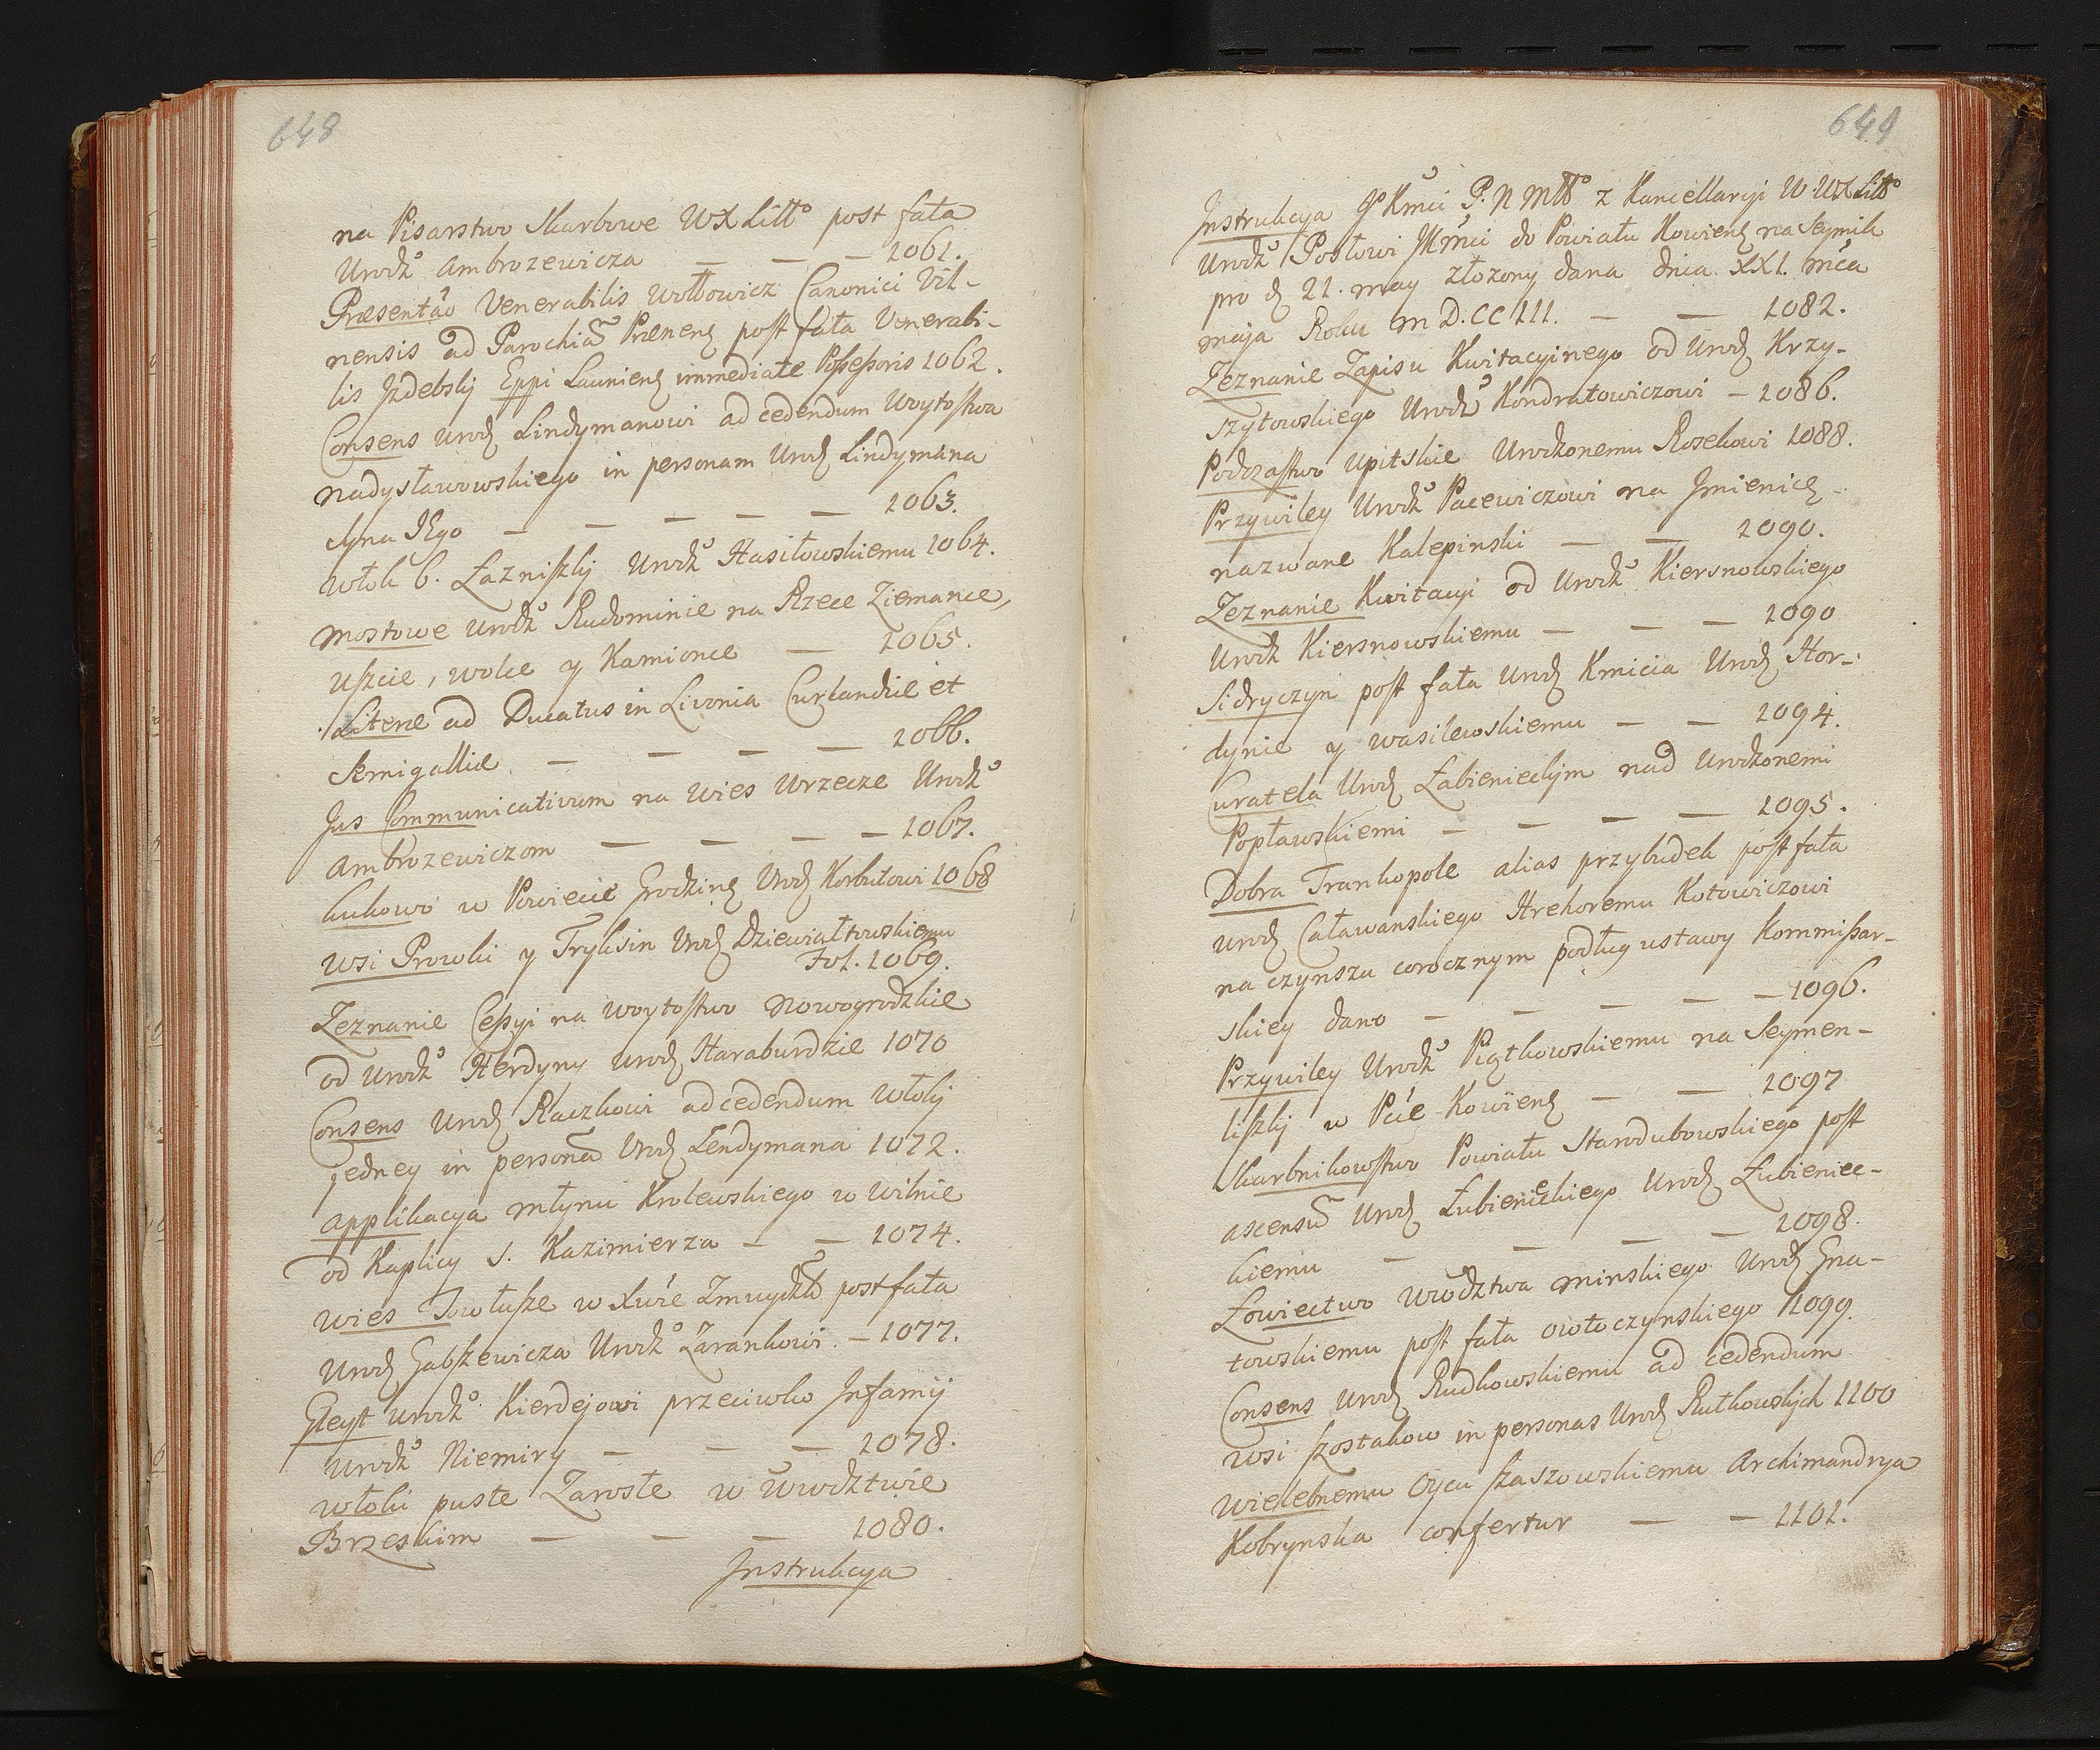 648
na Pisarstwo Skarbowe WXLitto post fata
Urodz° Ambrozewicza — — — 1061.
Præsentão Venerabilis Wołłowicz Canonici Vil-
nensis ad Parochiã Prenenẽ post fata Venerabi-
lis Jzdebskj Eppi Launienẽ immediate Possessoris 1062.
Consens Urodz Lindymanowi ad cedendum Woytostwa
nadysławowskiego in personam Urodz Lindymana
Syna JEgo — — — — — 1063.
Włok 6. Łazniszkj Urodz° Stasiłowskiemu 1064.
Mostowe Urodz° Rudominie na Rzece Ziemance,
Uszcie, Wolce y Kamionce — 1065.
Literæ ad Ducatus in Livonia Curlandiæ et
Semigalliæ. — — — — 1066.
Jus Communicativum na Wies Urzecze Urodz°
Ambrozewiczom — — — — 1067.
Kukowo w Powiecie Grodzinẽ Urodz Korbutowi 1068
Wsi Prowki y Tryksin Urodz Dziewiałtowskiemu
Fol. 1069.
Zeznanie Cessyi na Woytostwo Nowogrodzkie
od Urodz° Herdyny Urodz Haraburdzie 1070
Consens Urodz Raczkowi ad cedendum Włoki
jedney in personã Urodz Lendymana 1072.
Applikacya młynu Krolewskiego w Wilnie
od Kaplicy S. Kazimierza — — 1074.
Wies Towtusze w Xwie Zmuydzkð post fata
Urodz Gabszewicza Urodz° Zarankowi. — 1077.
Gleyt Urodz° Kierdejowi przeciwko Jnfamij
Urodz° Niemiry — — — 1078.
Włoki puste Zarosłe w Wwodztwie
Brzeskim — — — 1080.
Jnstrukcya
649
Jnstrukcya JºKmci P. N Mtt° z Kancellaryi W WXLitt°
Urodz° Posłowi JKmci do Powiatu Kowienẽ na Seymik
pro ð 21. may złozony dana dnia XXI. mca
maja Roku MD.CCIII. — — 1082.
Zeznanie Zapisu Kwitacyinego od Urodz Krzy-
sztowskiego Urodz° Kondratowiczowi — 1086.
Podczastwo Upitskie Urodzonemu Rosekowi 1088.
Przywiley Urodz° Pacewiczowi na Jmienicẽ
nazwane Kalepinski — — 1090.
Zeznanie Kwitacyi od Urodz° Kiersnowskiego
Urodz Kiersnowskiemu — — — 1090
Sidryczyn post fata Urodz Kmicia Urodz Hor-
dynie y Wasilewskiemu — — 1094.
Curatela Urodz Łabienieckjm nad Urodzonemi
Popławskiemi — — — — 1095.
Dobra Frankopole alias przybudek post fata
Urodz Catawanskiego Hrehoremu Kotowiczowi
na czynszu corocznym podług ustawy Kommissar-
skiey dano — — — — — 1096.
Przywiley Urodz° Piątkowskiemu na Seymen-
liszkj w Pcie Kowienẽ — — 1097
Skarbnikowstwo Powiatu Starodubowskiego post
ascensũ Urodz Łubienieckiego Urodz Łubieniec-
kiemu — — — — 1098.
Łowiectwo Wwodztwa Minskiego Urodz Gna-
towskiemu post fata Owłoczynskiego 1099.
Consens Urodz Rudkowskiemu ad cedendum
wsi Szostakow in personas Urodz Rutkowskich 1100
Wielebnemu Oycu Szaszowskiemu Archimandrya
Kobrynska confertur — — 1101.